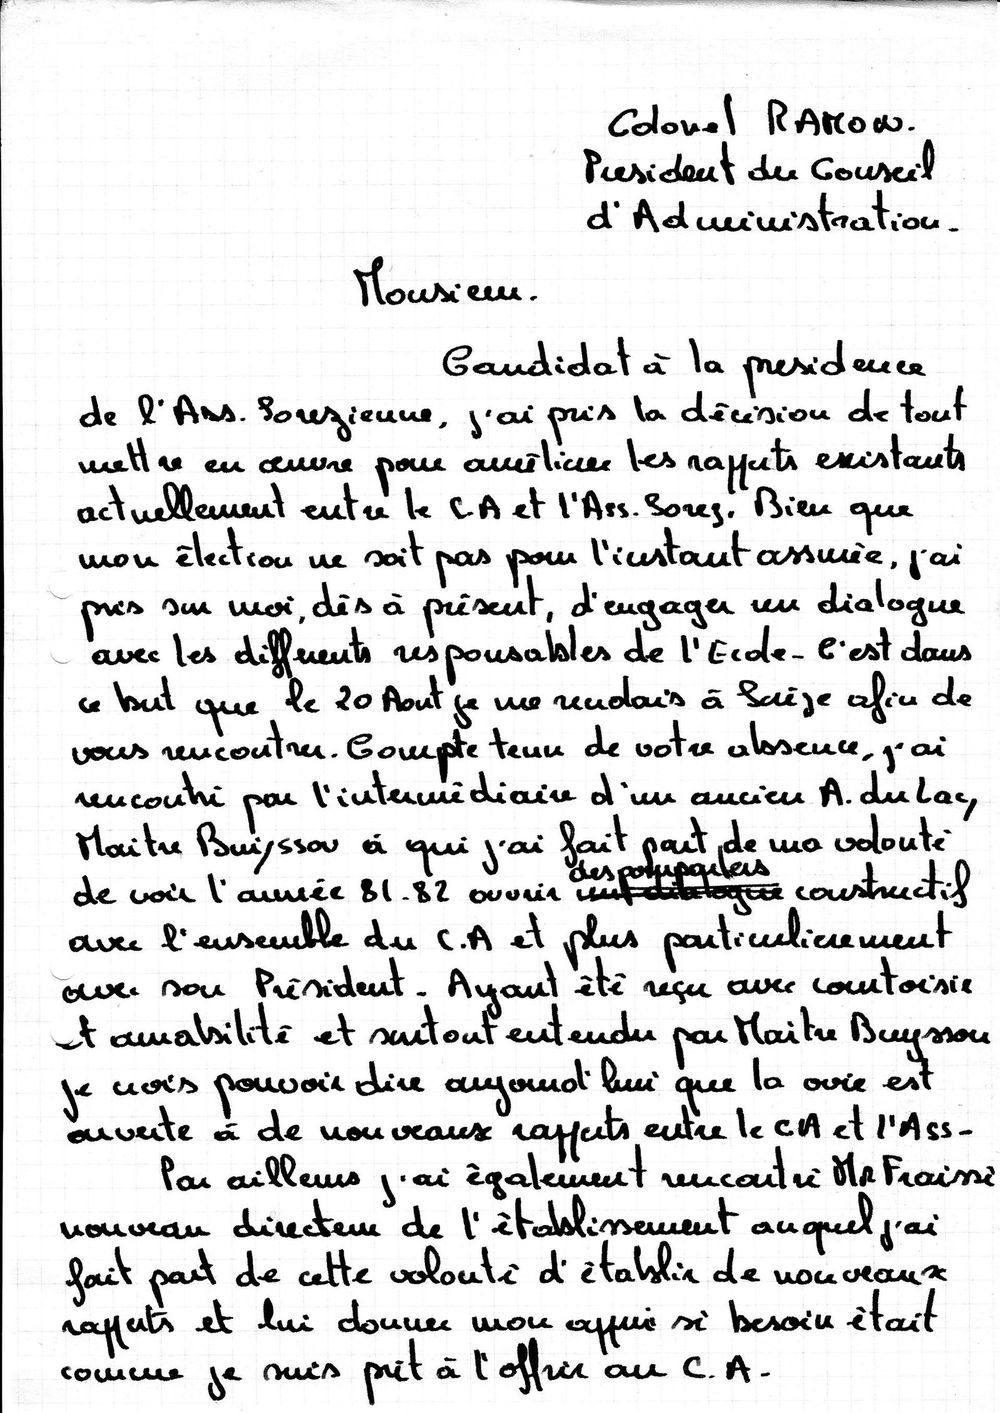 Colonel RAMON.
President du Conseil
d'Administration.
Monsieur.
Candidat à la presidence
de l'Ass. Sorezienne, j'ai pris la décision de tout
mettre en œuvre pour améliorer les rapports existants
actuellement entre le C.A et l'Ass. Sorez. Bien que
mon élection ne soit pas pour l'instant assurée, j'ai
pris sur moi, dès à présent, d'engager un dialogue
avec les differents responsables de l'Ecole - C'est dans
ce but que le 20 Aout je me rendais à Sorèze afin de
vous rencontrer. Compte tenu de votre absence, j'ai
rencontré par l'intermédiaire d'un ancien A. du Lac,
Maitre Buysson à qui j'ai fait part de ma volonté
des pourparlers
de voir l'année 81-82 ouvrir un dialogue constructif
avec l'ensemble du C.A et plus particulierement
avec son Président - Ayant été reçu avec courtoisie
et amabilité et surtout entendu par Maitre Buysson
je crois pouvoir dire aujourd'hui que la voie est
ouverte à de nouveaux rapports entre le C.A et l'Ass -
Par ailleurs j'ai également rencontré Mr Fraissé
nouveau directeur de l'établissement auquel j'ai
fait part de cette volonté d'établir de nouveaux
rapports et lui donner mon appui si besoin était
comme je suis prêt à l'offrir au C.A -